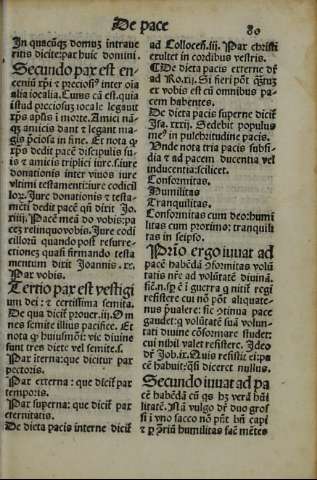 De pace
80
In quacūqȝ domuȝ intraue
ritis dicite: pax huic domini.
Secundo pax est en
ceniū xp̄i ⁊ preciosiꝰ inter oīa
alia iocalia. Cuius cā est. quia
istud preciosuȝ iocale legauit
xp̄s apl̓is i morte. Amici nā
qȝ amicis dant ⁊ legant ma
gis p̄ciosa in fine. Et nota qꝫ
xp̄s dedit pacē discipulis su
is ⁊ amicis triplici iure. s. iure
donationis inter viuos iure
vltimi testamenti: iure codicil
loꝝ. Jure donationis ⁊ testa
mēti dedit pacē qn̄ dixit Jo.
xiiij. Pacē meā do vobis: pa
ceȝ relinquo vobis. Jure codi
cilloꝝ quando post resurre
ctioneȝ quasi firmando testa
mentum dixit Joannis .xx.
Pax vobis.
Tertio pax est vestigi
um dei: ⁊ certissima semita.
De qua dicit̄ prouer. iij. Om
nes semite illius pacifice. Et
nota qꝫ huiusmōi vie diuine
sunt tres diete vel semite. s.
Pax iterna: que dicitur pax
pectoris.
Pax externa: que dicit̄ pax
temporis.
Pax superna: que dicit̄ pax
eternitatis.
De dieta pacis interne dicit̄
ad Collocen̄. iij. Pax christi
exultet in cordibus vestris.
De dieta pacis externe dr̄
ad Ro. xij. Si fieri pōt qd̓ꝫ
ex vobis est cū omnibus pa
cem habentes.
De dieta pacis superne dicit̄
Isa. xxxij. Sedebit populus
meꝰ in pulchritudine pacis.
Unde nota tria pacis subsi
dia ⁊ ad pacem ducentia vel
inducentia: scilicet.
Conformitas.
Humilitas
Tranquilitas.
Conformitas cum deo: humi
litas cum proximo: tranquili
tas in seipso.
Prio ergo iuuat ad
pacē habēdā ꝯformitas volū
tatis nr̄e ad volūtatē diuinā.
refistere cui nō pōt aliquate
nus p̄ualere: sic ꝯtinua pace
gaudet: q̄ volūtatē suā volun
tati diuine cōformare studet:
cui nihil valet resistere. Ideo
dr̄ Job. ix. Quis resistit ei: ⁊ pa
cē habuit: qͣsi diceret nullus.
Secundo iuuat ad pa
cē habēdā cū qͦs hȝ verā hūi
litatē. Nā vulgo dr̄ duo gros
si ī vno sacco nō pn̄t bn̄ capi